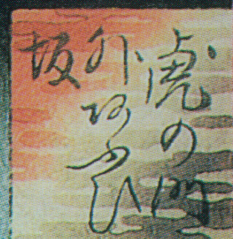 虎の門
外あふひ
坂